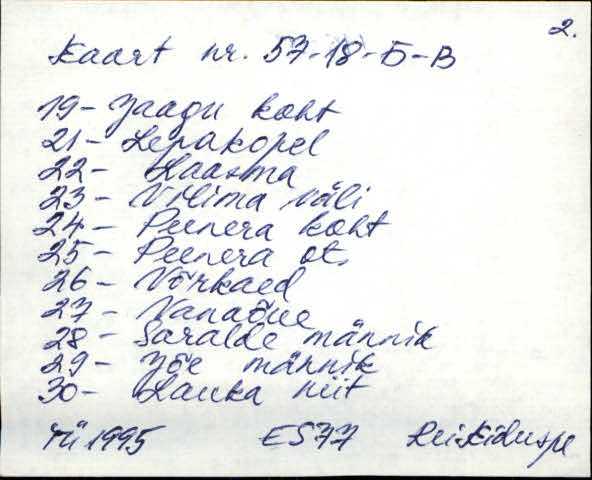 2.
Kaart nr. 57-18-Б-В
19- Jaagu koht
21- Lepakopel
22- Haasma
23- väli
24- Peenera koht
25- Peenera ot.
26- Võrkaed
27- Vanaõue
28- Saralde männik
29- Jõe männik
30- Lauka niit
TÜ 1995 ES77